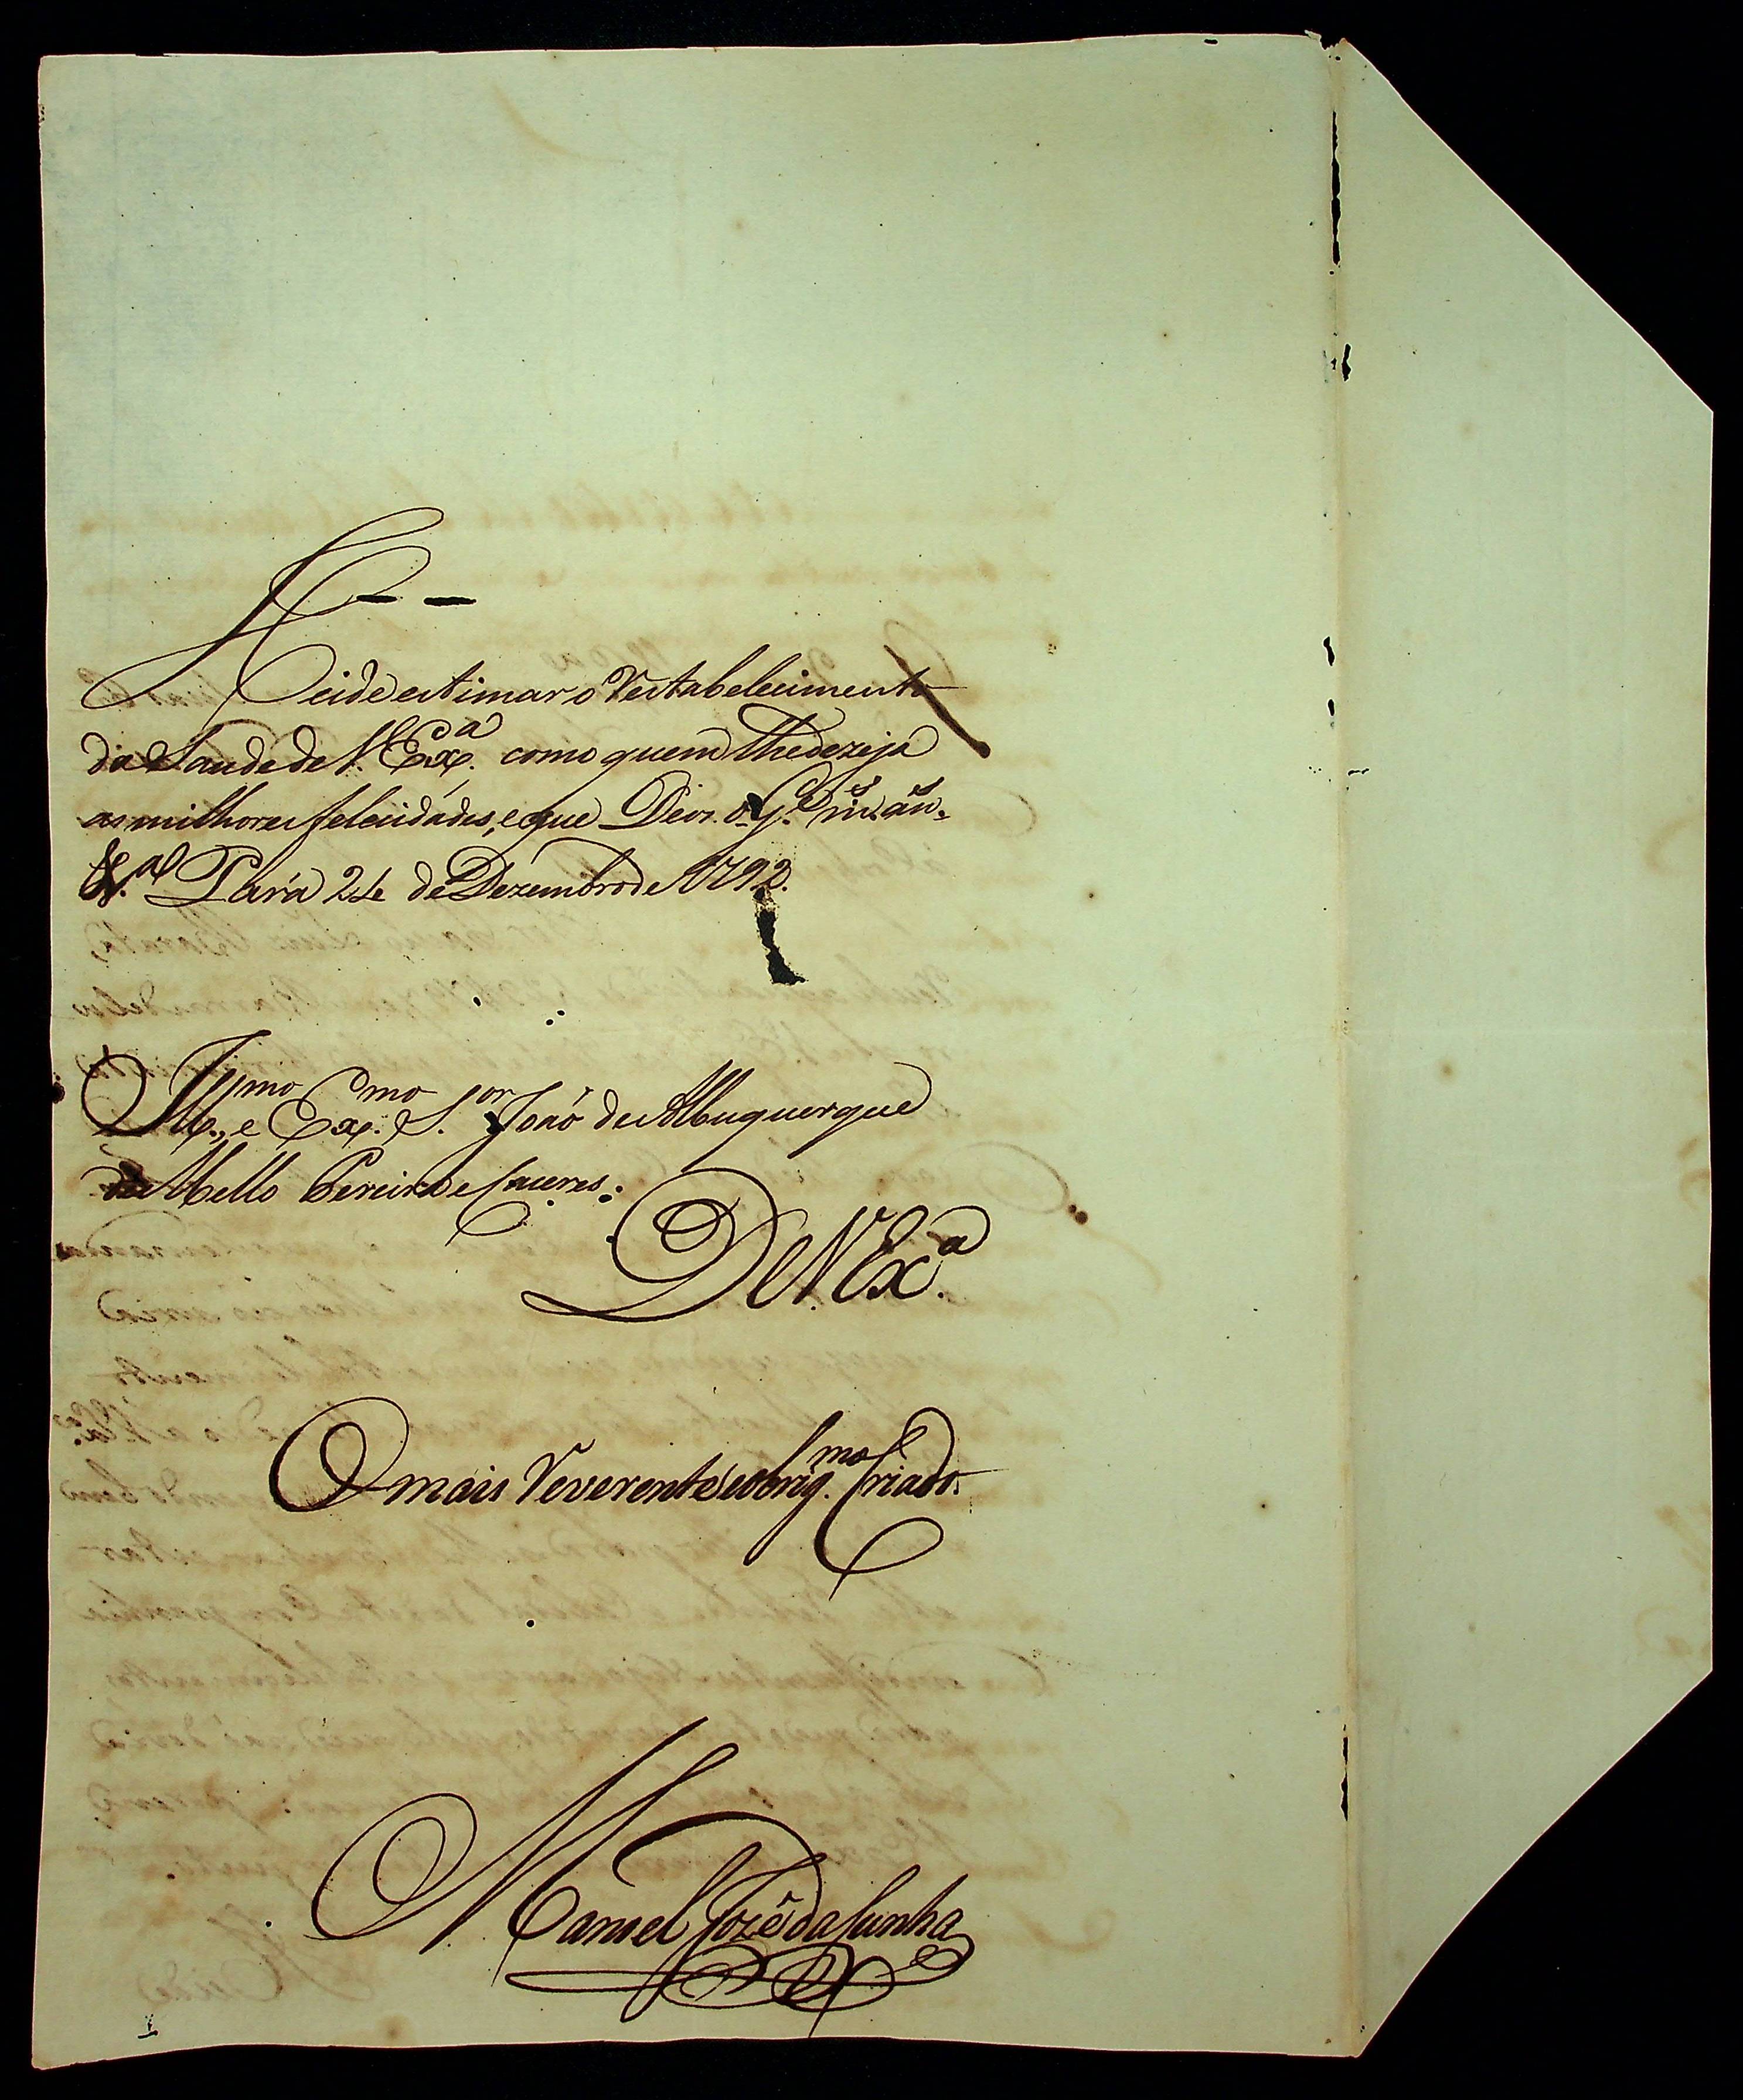 Heide estimar o restabelecimento
da Saude de V. Exª. como quem lhe dezeja
as milhores felecidades, e que Deos. g.de m.s an.s
&.ª Pará 24 de Dezembro de 1792.
Ill.mo, e Ex.mo S.or João de Albuquerque
de Mello Pereira e Caceres.
De V. Ex.ª
O mais reverente e obrig.mo Criado.
Manoel Jozé da Cunha